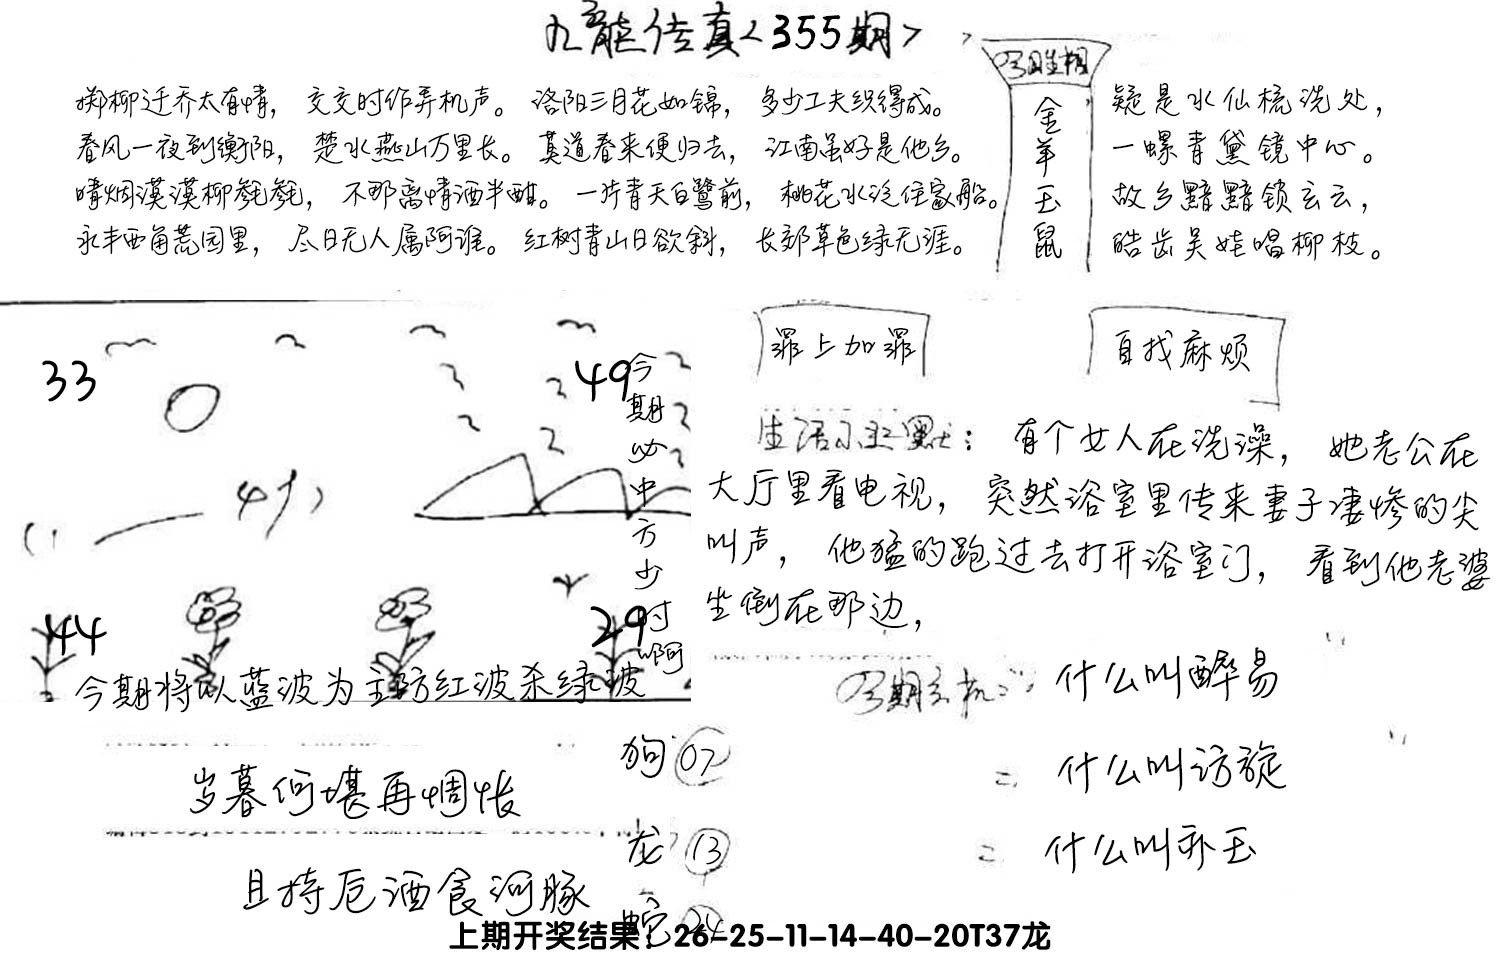 九龍传真<355期>
掷柳迁乔太有情，交交时作弄机声。洛阳三月花如锦，多少工夫织得成。
春风一夜到衡阳，楚水燕山万里长。莫道春来便归去，江南虽好是他乡。
晴烟漠漠柳毵毵，不那离情酒半酣。一片青天白鹭前，桃花水泛住家船。
永丰西角荒园里，尽日无人属阿谁。红树青山日欲斜，长郊草色绿无涯。
金羊玉鼠
疑是水仙梳洗处，
一螺青黛镜中心。
故乡黯黯锁玄云，
皓齿吴娃唱柳枝。
33
49
44
29
今期必中方少付啊
今期将以蓝波为主防红波杀绿波
罪上加罪
自找麻烦
生活小幽默：有个女人在洗澡，她老公在
大厅里看电视，突然浴室里传来妻子凄惨的尖
叫声，他猛的跑过去打开浴室门，看到他老婆
坐倒在那边，
什么叫醉易
什么叫访旋
什么叫乔玉
岁暮何堪再惆怅
且持卮酒食河豚
狗 07
龙 13
蛇 24
上期开奖结果：26-25-11-14-40-20T37龙